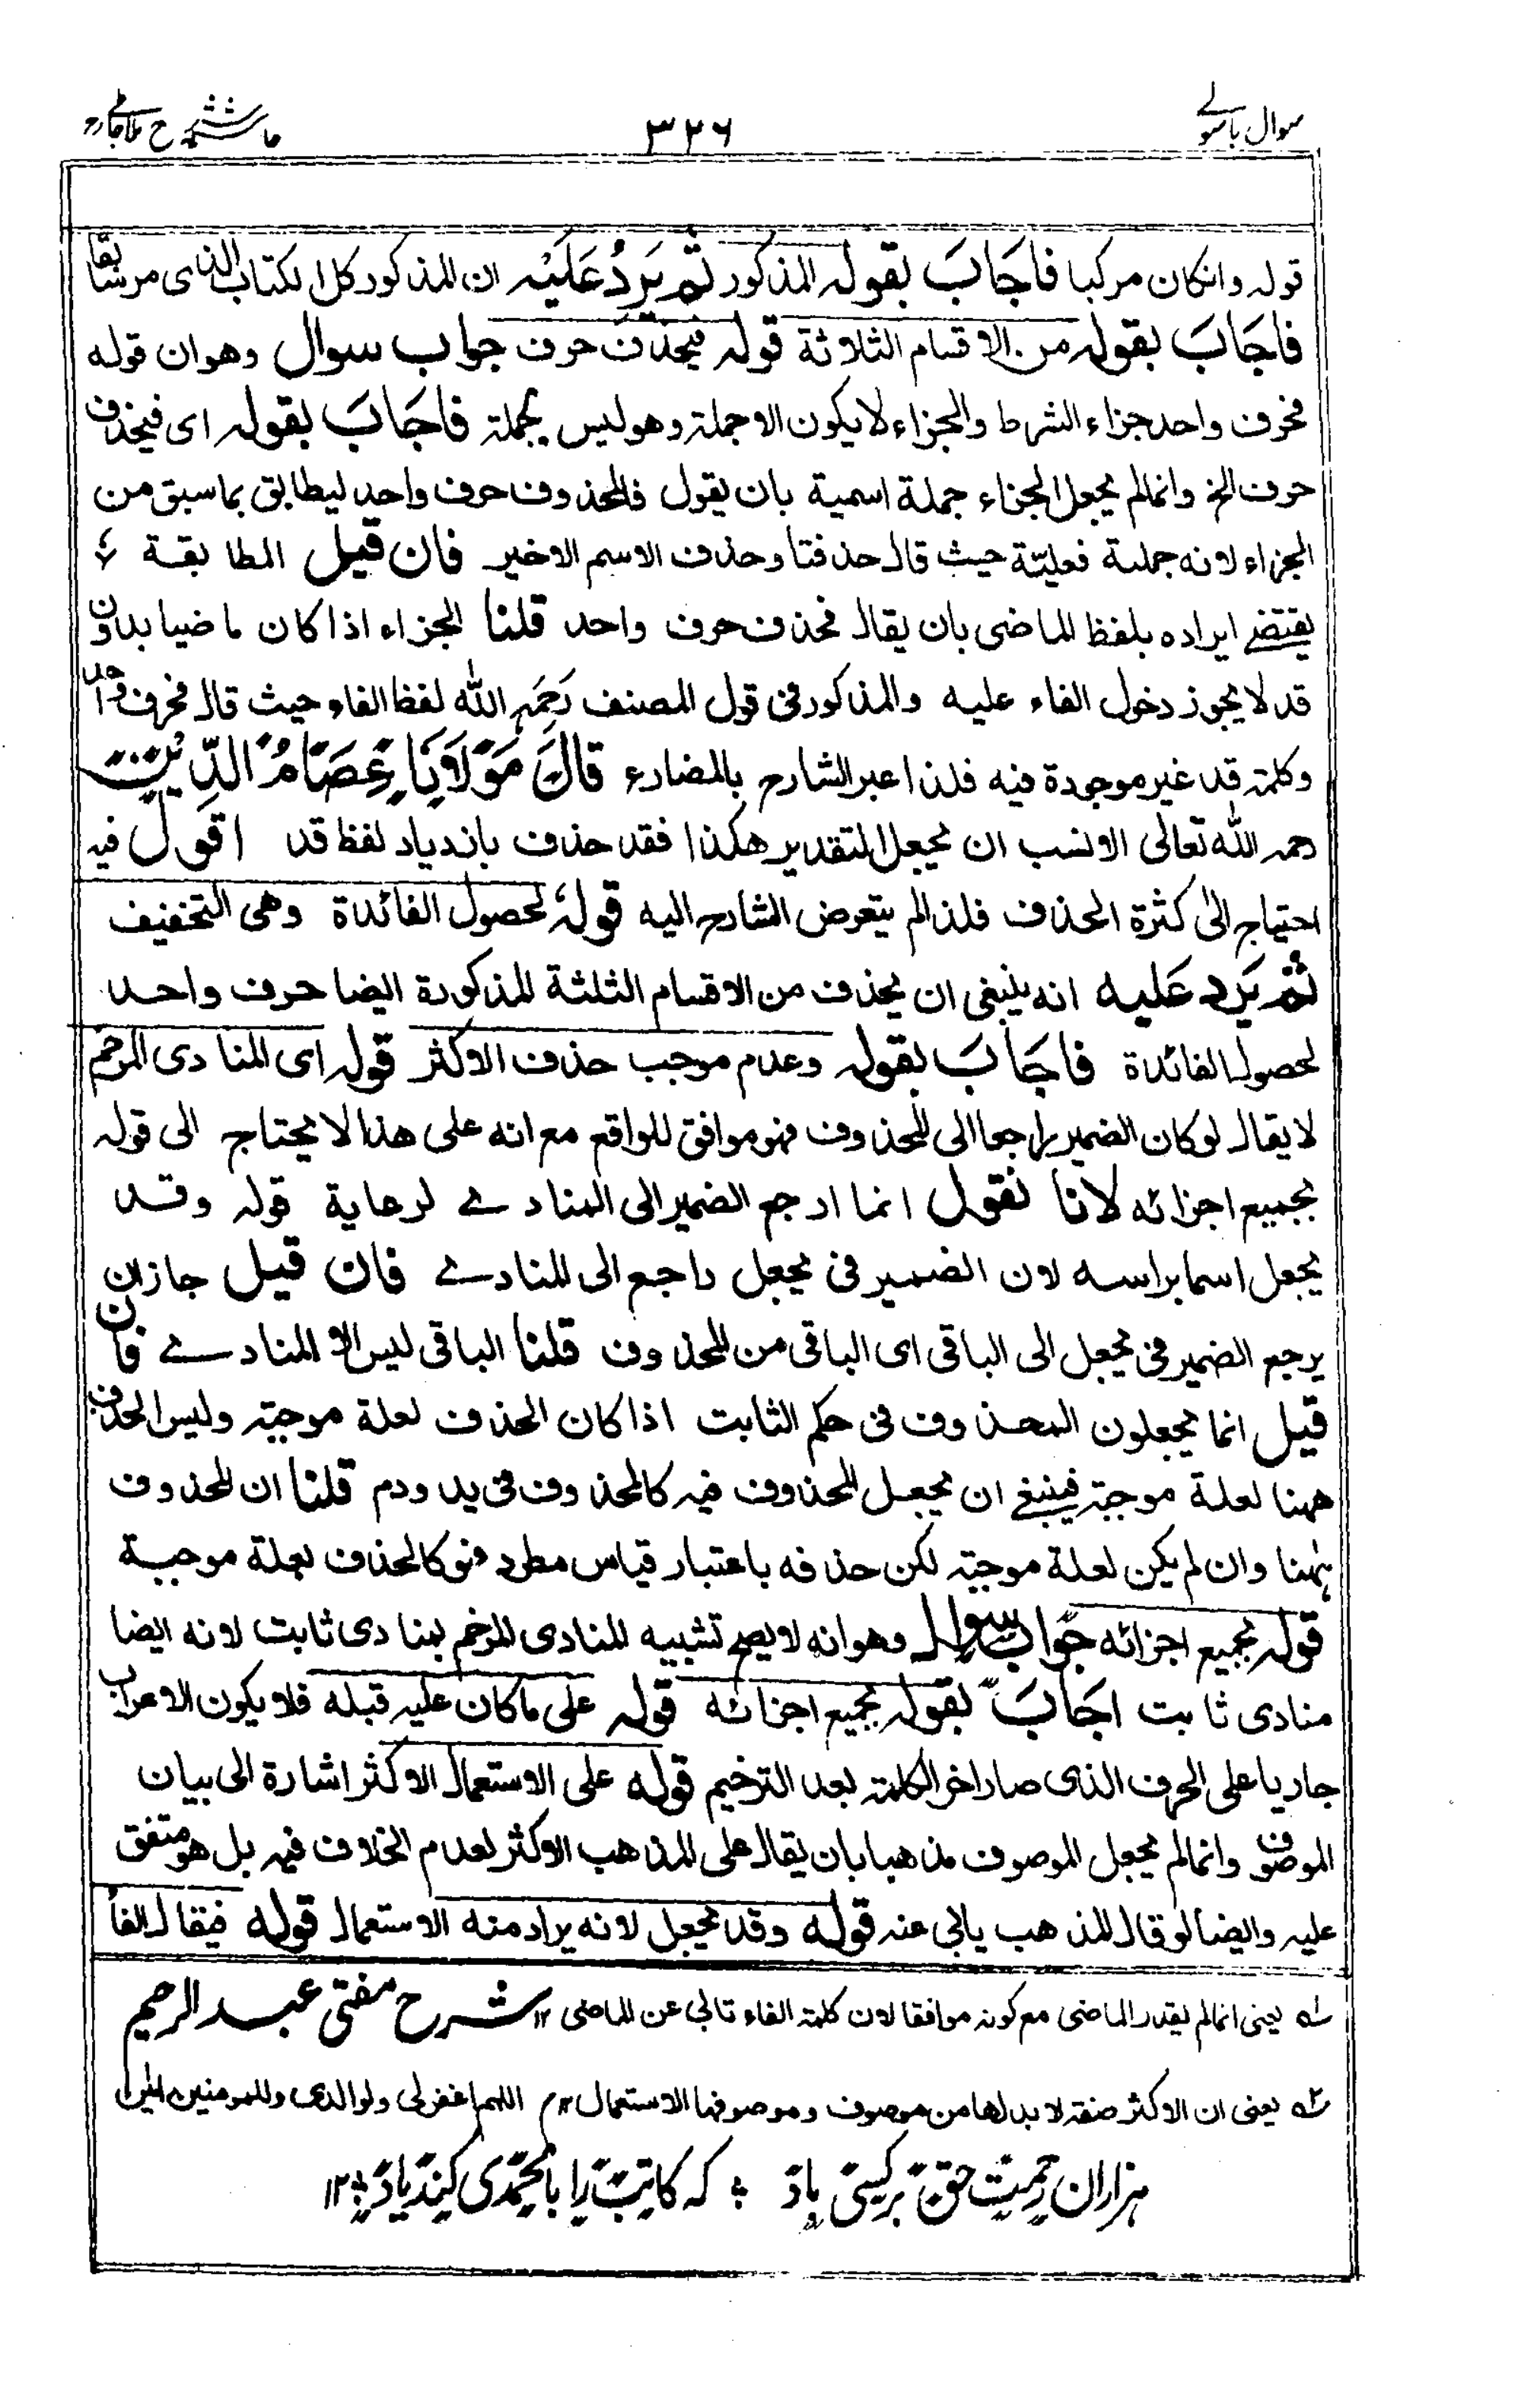 سوال باسولی ٣٢٦ حاشیہ شرح ملا جامی
قوله وانكان مركبا فَاَجَابَ بقوله المذكور ثُمَّ يَرِدُ عَلَيْهِ ان المذكور كل الكتاب الذى مر سابقا
فَاَجَابَ بقوله من الاقسام الثلاثة قوله فيحذف حرف جواب سوال وهو ان قوله
فحرف واحد جزاء الشرط والجزاء لا يكون الا جملة وهو ليس بجملة فَاَجَابَ بقوله اى فيحذف
حرف الخ وانما لم يجعل الجزاء جملة اسمية بان يقول فالمحذوف حرف واحد ليطابق بما سبق من
الجزاء لانه جملة فعليّة حيث قال حذفتا وحذف الاسم الاخير فان قيل المطابقة
يقتضے ايراده بلفظ الماضى بان يقال فحذف حرف واحد قلنا الجزاء اذا كان ماضيا بدون
قد لا يجوز دخول الفاء عليه والمذكور فى قول المصنف رَحِمَهُ الله لفظ الفاء حيث قال فحرف واحد
وكلمة قد غير موجودة فيه فلذا عبر الشارح بالمضارع قَالَ مَوْلَانَا عِصَامُ الدِّيْنِ
رحمه الله تعالى الانسب ان يجعل التقدير هكذا فقد حذف بازدياد لفظ قد اقول فيه
احتياج الى كثرة الحذف فلذا لم يتعرض الشارح اليه قولهٗ لحصول الفائدة وهى التخفيف
ثُمَّ يَرِد عَليه انه ينبغى ان يحذف من الاقسام الثلثة المذكورة ايضا حرف واحد
لحصول الفائدة فَاَجَابَ بقوله وعدم موجب حذف الاكثر قوله اى المنادى المرخم
لا يقال لو كان الضمير راجعا الى المحذوف فهو موافق للواقع مع انه على هذا لا يحتاج الى قوله
بجميع اجزائه لانا نقول انما ارجع الضمير الى المنادے لرعاية قوله وقد
يجعل اسما براسه لان الضمير فى يجعل راجع الى المنادے فان قيل جاز ان
يرجع الضمير فى يجعل الى الباقى اى الباقى من المحذوف قلنا الباقى ليس الا المنادے فان
قيل انما يجعلون المحذوف فى حكم الثابت اذا كان الحذف لعلة موجبة وليس الحذف
ههنا لعلة موجبة فينبغے ان يجعل المحذوف فيه كالمحذوف فى يد ودم قلنا ان المحذوف
ههنا وان لم يكن لعلة موجبة لكن حذفه باعتبار قياس مطرد فهو كالحذف لعلة موجبة
قوله بجميع اجزائه جواب سوال وهو انه لا يصح تشبيه المنادى المرخم بمنادى ثابت لانه ايضا
منادى ثابت اَجَابَ بقوله بجميع اجزائه قوله على ما كان عليه قبله فلا يكون الاعراب
جاريا على الحرف الذى صار اخر الكلمة بعد الترخيم قوله على الاستعمال الاكثر اشارة الى بيان
الموصوف وانما لم يجعل الموصوف مذهبا بان يقال على المذهب الاكثر لعدم الخلاف فيه بل هو متفق
عليه وايضا لو قال المذهب يابى عنه قوله وقد يجعل لانه يراد منه الاستعمال قوله فيقال الفا
لہ يعنى انما لم يقدر الماضى مع كونه موافقا لان كلمة الفاء تابى عن الماضى ١٢ شرح مفتى عبد الرحيم
ٹہ يعنى ان الاكثر صفة لا بد لها من موصوف وموصوفها الاستعمال ١٢ م اللهم اغفر لى ولوالدى وللمومنين امين
ہزاران رحمتِ حق بر کسی باد ؛ کہ کاتب را بالحمدی کند یاد ١٢